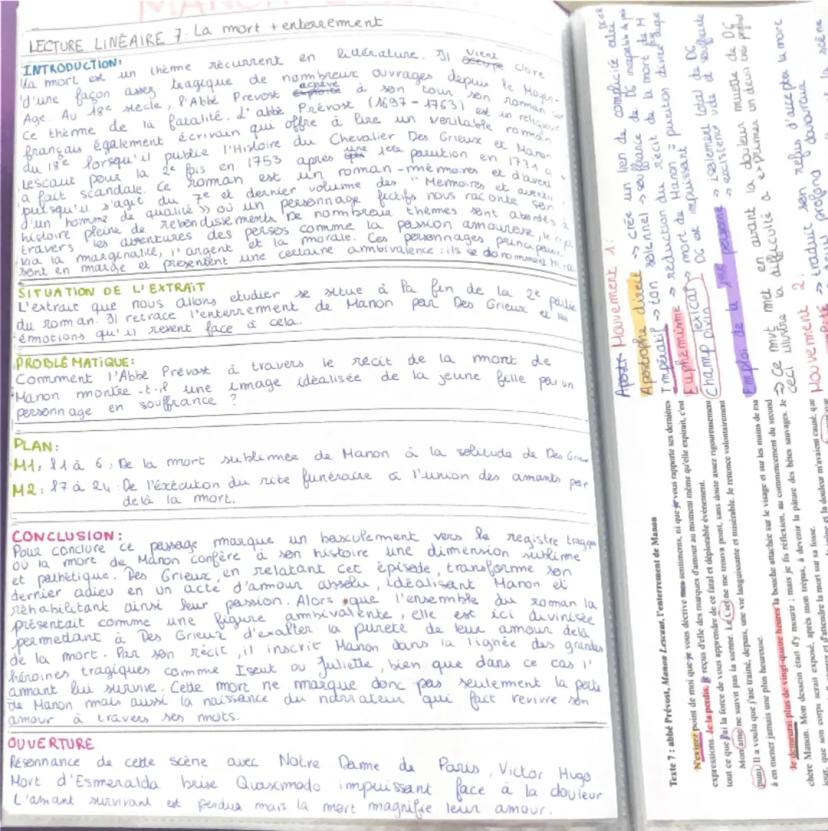 LECTURE LINÉAIRE 7: La mort + enterrement
INTRODUCTION:
La mort est un thème récurrent en littérature. Il vient clore
d'une façon assez tragique de nombreux ouvrages depuis le Moyen-
Age. Au 18e siècle, l'Abbé Prevost achève à son tour son roman sur
ce thème de la fatalité. L'abbé Prévost (1697-1763) est un religieux
français également écrivain qui offre à lire un veritable roman
du 18e lorsqu'il publie l'Histoire du Chevalier Des Grieux et Manon
Lescaut pour la 2e fois en 1753 après une 1ère parution en 1731 qui
a fait scandale. Ce roman est un roman-mémoires et d'aven
puisqu'il s'agit du 7e et dernier volume des "Mémoires et aventures
d'un homme de qualité" où un personnage fictifs nous raconte son
histoire pleine de rebondissements. De nombreux thèmes sont abordés à
travers les aventures des persos comme la passion amoureuse,
via la marginalité, l'argent et la morale. Ces personnages principaux
sont en marge et présentent une certaine ambivalence: ils se
SITUATION DE L'EXTRAIT
L'extrait que nous allons etudier se situe à la fin de la 2e partie
du roman. Il retrace l'enterrement de Manon par Des Grieux et les
émotions qu'il resent face à cela.
PROBLÉMATIQUE:
Commment l'Abbé Prévost à travers le récit de la mort de
Manon montre-t-il une image idéalisée de la jeune fille par un
personnage en souffrance ?
PLAN:
M1: l1 à 6: De la mort sublimée de Manon à la solitude de Des Grieux
M2: l7 à 24: De l'éxécution du rite funéraire à l'union des amants par
delà la mort.
CONCLUSION:
Pour conclure ce passage marque un basculement vers le registre tragique
où la mort de Manon confère à son histoire une dimension sublime
et pathétique. Des Grieux, en relatant cet épisode, transforme son
dernier adieu en un acte d'amour absolu, idéalisant Manon et
réhabilitant ainsi leur passion. Alors que l'ensemble du roman la
présentait comme une figure ambivalente, elle est ici divinisée
permedant à Des Grieux d'exalter la pureté de leur amour delà
de la mort. Par son récit, il inscrit Manon dans la lignée des grandes
héroines tragiques comme Iseut ou Juliette, bien que dans ce cas l'
amant lui survive. Cette mort ne marque donc pas seulement la perte
de Manon mais aussi la naissance du narrateur qui fait revivre son
amour à travers ses mots.
OUVERTURE
Résonnance de cette scène avec Notre Dame de Paris, Victor Hugo
Mort d'Esmeralda brise Quasimodo impuissant face à la douleur
L'amant survivant est perdus mais la mort magnifie leur amour.
Mouvement 1:
Apostrophe directe → crée un lien de complicité
Impératif → ton solennel → souffrance de DG
Euphémisme → réduction du récit de la mort de M
Champ lexical → mort de Manon = punition divine
divin DG et impuissant
Emploi de la 1ère personne → isolement total de DG
→ existence vide et souffrante
→ Ce mvt met en avant la douleur muette de DG
ceci illustre la difficulté à exprimer un deuil
Mouvement 2:
→ traduit son refus d'accepter la mort
Texte 7 : abbé Prévost, Manon Lescaut, l'enterrement de Manon
N'exigez point de moi que je vous décrive mes sentiments, ni que je vous rapporte ses dernières
expressions. Je la perdis; je reçus d'elle des marques d'amour au moment même qu'elle expirait, c'est
tout ce que j'ai la force de vous apprendre de ce fatal et déplorable événement.
Mon âme ne suivit pas la sienne. Le Ciel ne me trouva point, sans doute assez rigoureusement
puni. Il a voulu que j'aie traîné, depuis, une vie languissante et misérable. Je renonce volontairement
à en mener jamais une plus heureuse.
Je demeurai plus de vingt-quatre heures la bouche attachée sur le visage et sur les mains de ma
chère Manon. Mon dessein était d'y mourir ; mais je fis réflexion, au commencement du second
jour, que son corps serait exposé, après mon trépas, à devenir la pâture des bêtes sauvages. Je
et d'attendre la mort sur sa fosse.
et la douleur m'avaient causé, que